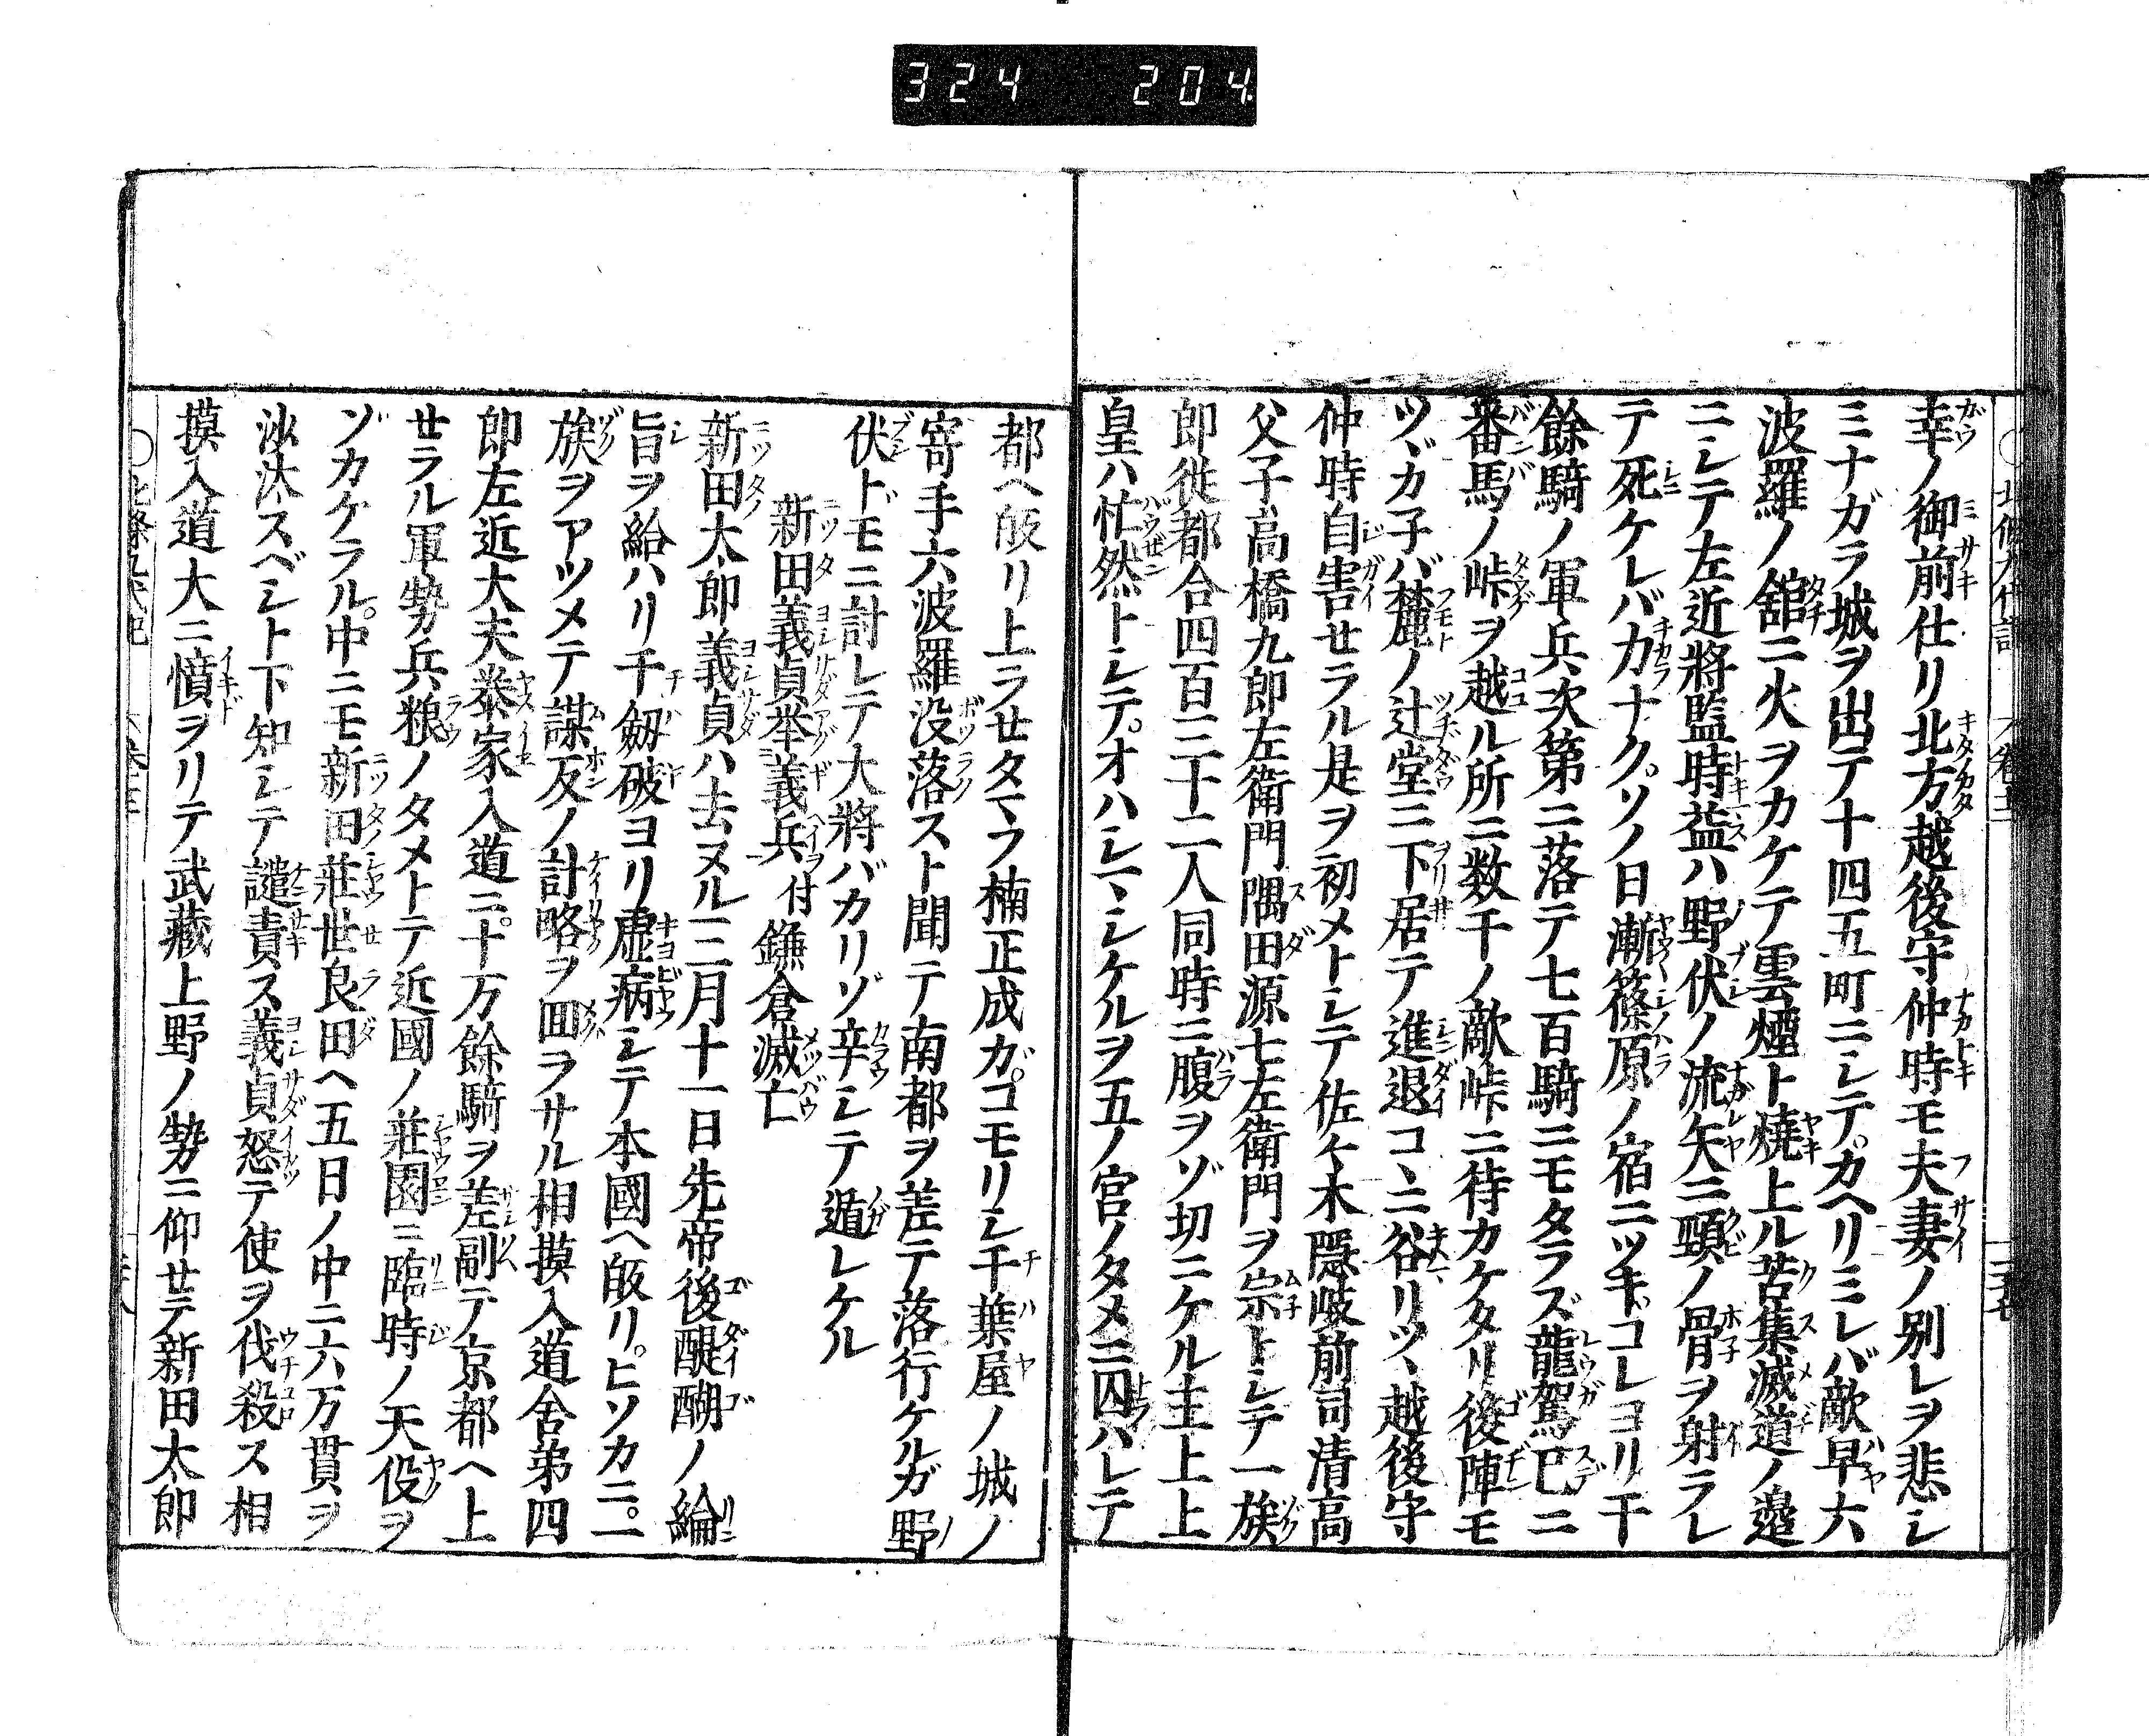 324 204
幸ノ御前仕リ北方越後守仲時モ夫妻ノ別レヲ悲シ
ミナガラ城ヲ出テ十四五町ニシテカヘリミレバ敵早六
波羅ノ舘ニ火ヲカケテ雲煙ト燒上ル苦集滅道ノ邉
ニシテ左近將監時益ハ野伏ノ流矢ニ頸ノ骨ヲ射ラレ
テ死ケレバカナクソノ日漸篠原ノ宿ニツキコレヨリ千
餘騎ノ軍兵次第ニ落テ七百騎ニモタラズ龍駕已ニ
番馬ノ峠ヲ越ル所ニ数千ノ敵峠ニ待カケタリ後陣モ
ツヾカ子バ麓ノ辻堂ニ下居テ進退コヽニ谷リツヽ越後守
仲時自害セラル是ヲ初メトシテ佐々木隠岐前司清高
父子高橋九郎左衛門隅田源七左衛門ヲ宗トシテ一族
郎従都合四百三十二人同時ニ腹ヲゾ切ニケル主上上
皇ハ忙然トシテオハシマシケルヲ五ノ宮ノタメニ囚ハレテ
都ヘ皈リ上ラセタマフ楠正成ガコモリシ千葉屋ノ城ノ
寄手六波羅没落スト聞テ南都ヲ差テ落行ケルガ野
伏トモニ討レテ大將バカリゾ辛シテ遁レケル
新田義貞挙義兵付鎌倉滅亡
新田太郎義貞ハ去ヌル三月十一日先帝後醍醐ノ綸
旨ヲ給ハリ千劔破ヨリ虚病シテ本國ヘ皈リヒソカニ一
族ヲアツメテ謀反ノ計略ヲ囬ラサル相摸入道舎弟四
郎左近大夫泰家入道ニ十万餘騎ヲ差副テ京都ヘ上
セラル軍勢兵粮ノタメトテ近國ノ莊園ニ臨時ノ天役ヲ
ゾカケラル中ニモ新田莊世良田ヘ五日ノ中ニ六万貫ヲ
沙汰スベシト下知シテ譴責ス義貞怒テ使ヲ伐殺ス相
摸入道大ニ憤ヲリテ武藏上野ノ勢ニ仰セテ新田太郎